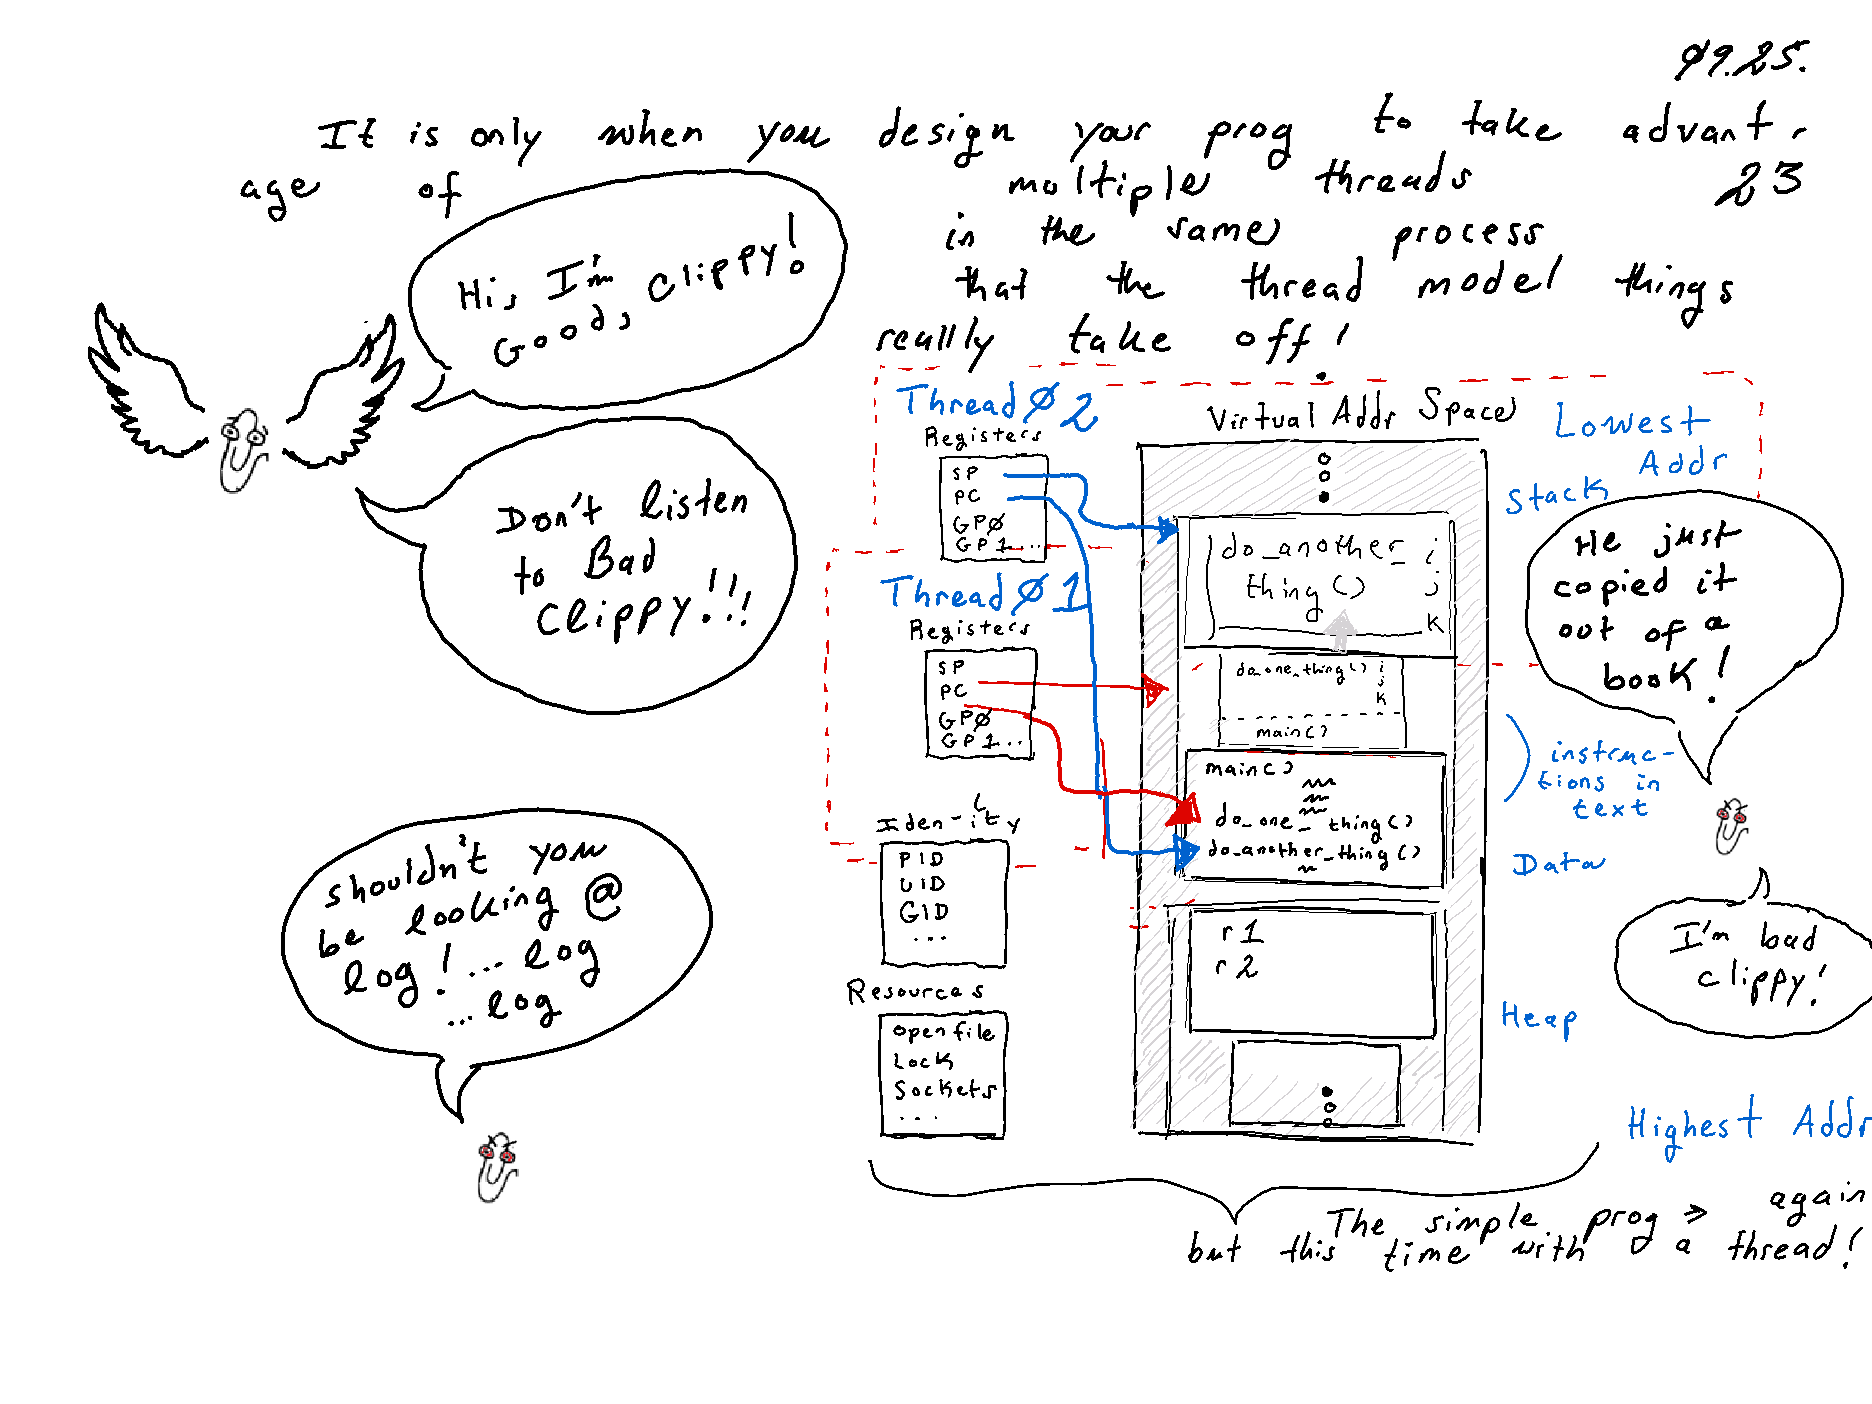 Ø9.25.
It is only when you design your prog to take advant-
age of multiple threads 23
in the same process
that the thread model things
really take off!
Hi, I'm
Good, Clippy!
Don't listen
to Bad
Clippy!!!
shouldn't you
be looking @
log!... log
... log
Thread Ø2
Registers
SP
PC
GPØ
GP1...
Thread Ø1
Registers
SP
PC
GPØ
GP1...
Identity
PID
UID
GID
...
Resources
open file
Lock
Sockets
...
Virtual Addr Space
do_another_ i
thing() j
k
do_one_thing() i
j
k
main()
main()
do_one_thing()
do_another_thing()
r1
r2
Lowest
Addr
Stack
instruc-
tions in
text
Data
Heap
Highest Addr
He just
copied it
out of a
book!
I'm bad
clippy!
The simple prog > again
but this time with a thread!